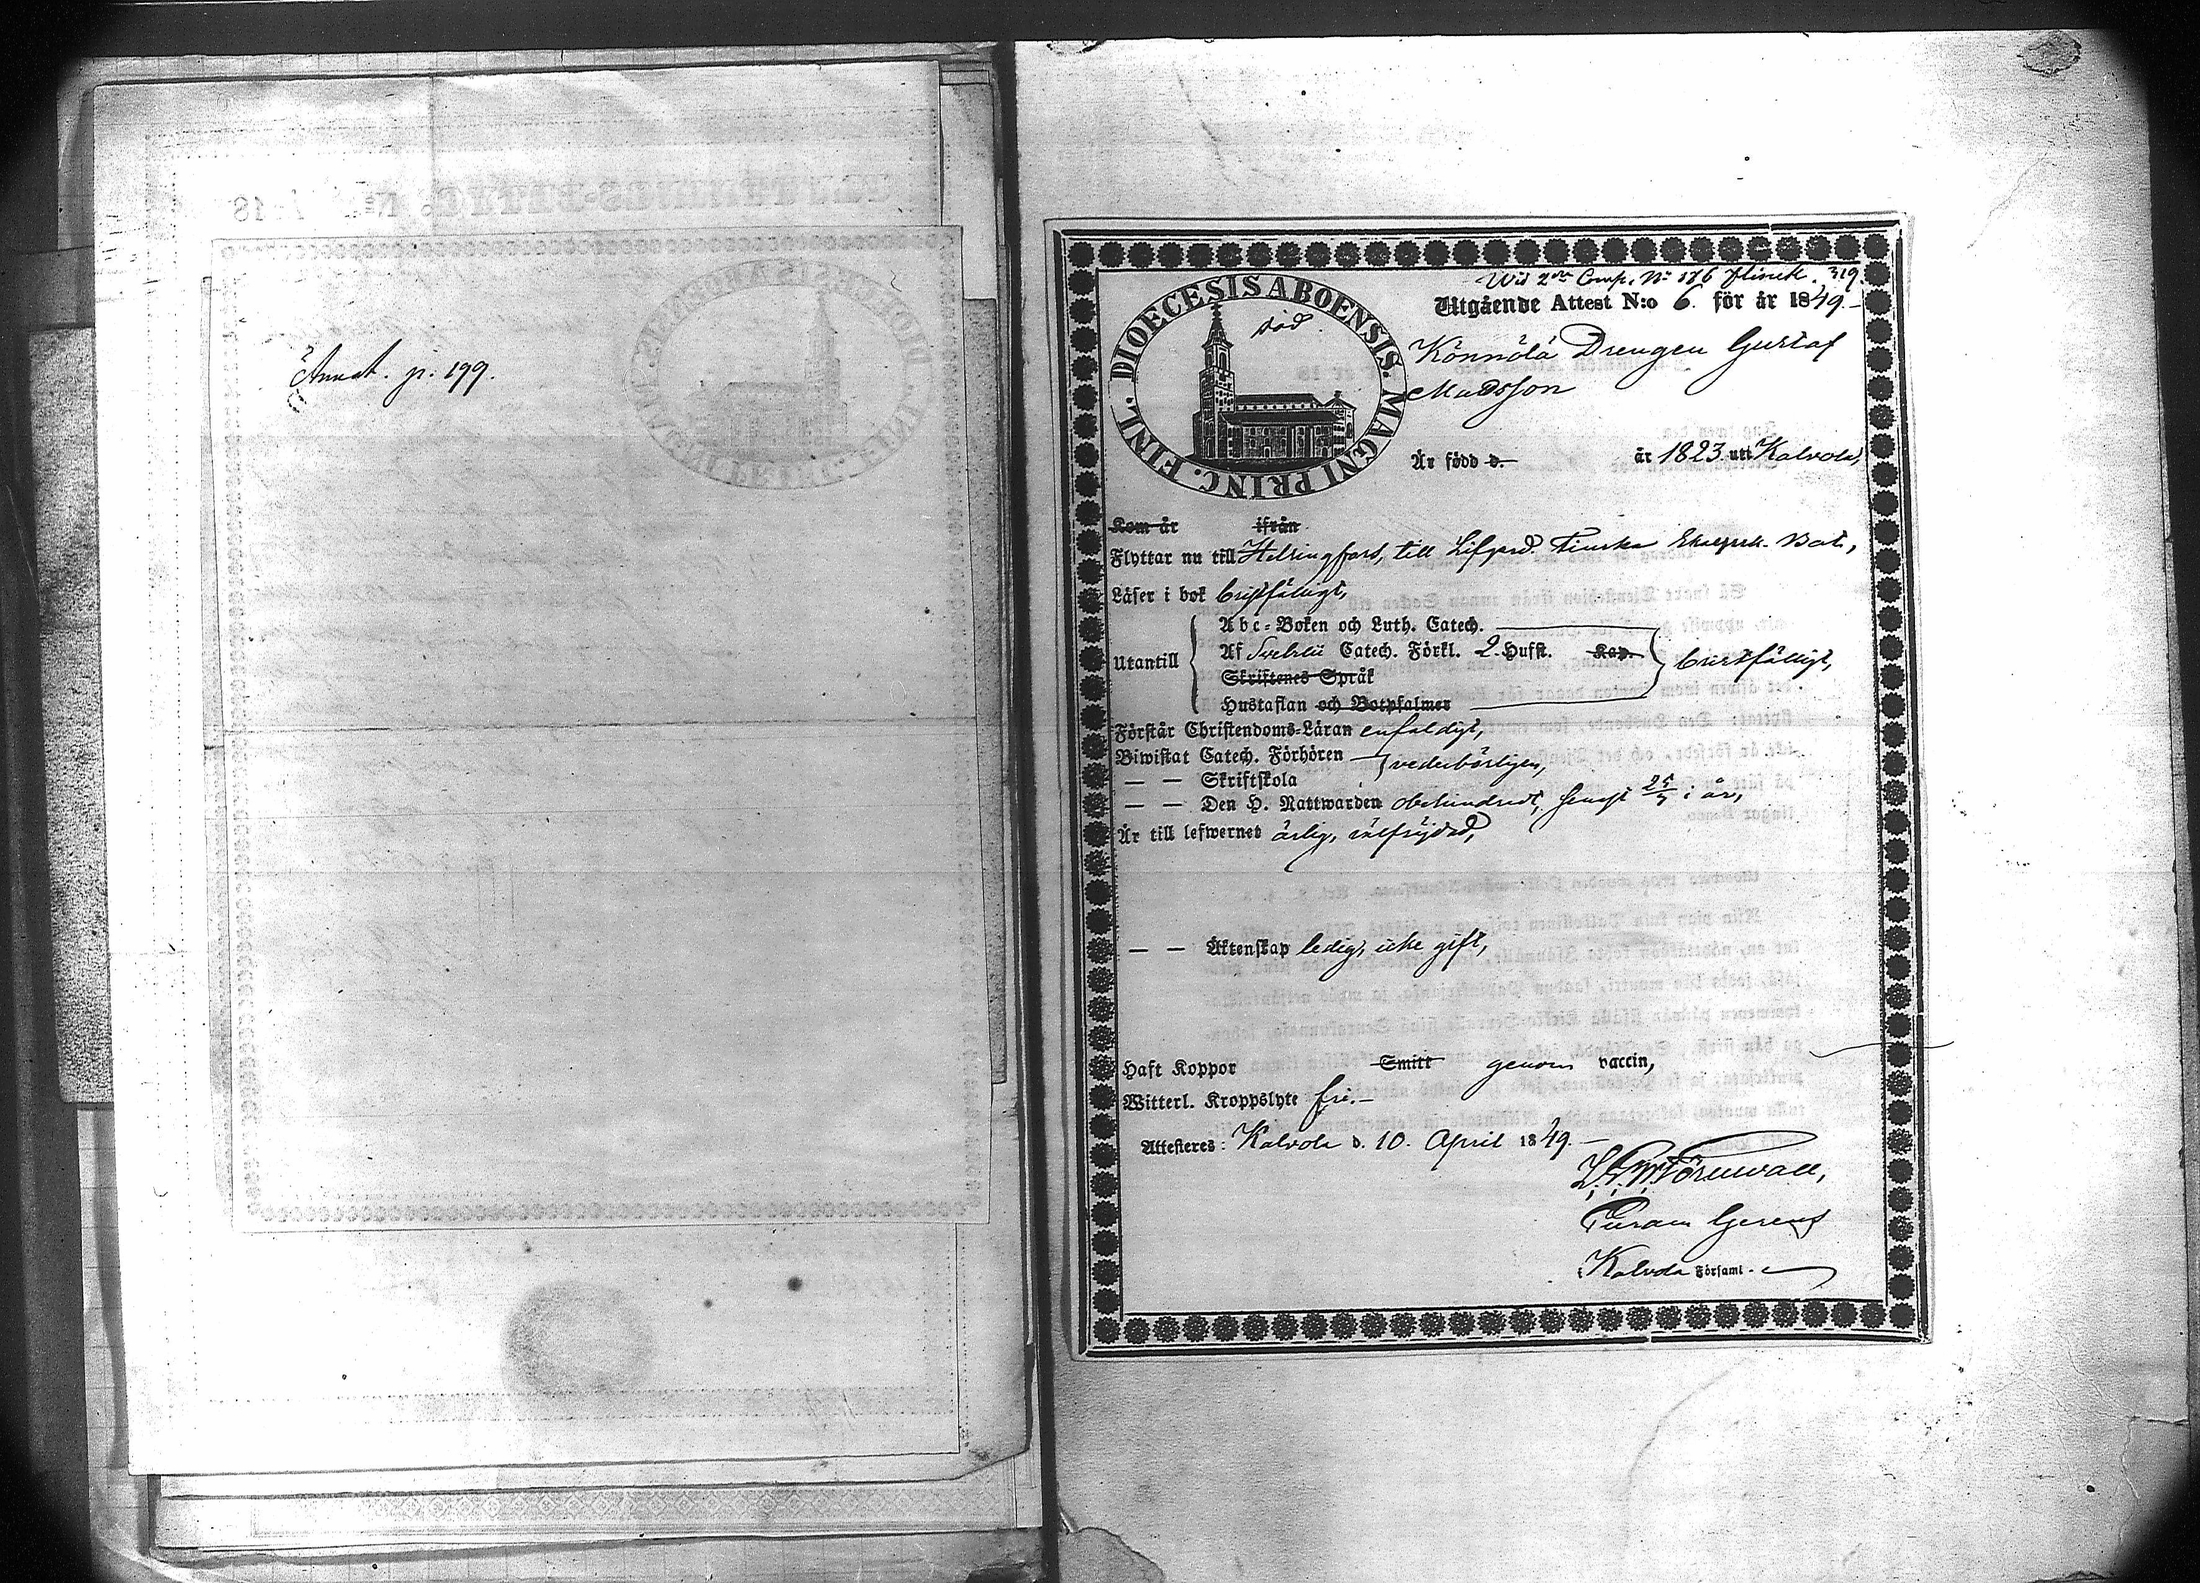 Annot. p. 199.
Wid 2dra Comp. No 176 Flinck. 319.
DIOECESIS ABOENSIS. MAGNI PRINC. FINL.
död.
Utgående Attest N:o 6. för år 1849.-
Könnölä Drengen Gustaf
Madsson
Är född d. år 1823 uti Kalvola,
Kom år ifrån
Flyttar nu till Helsingfors, till Lifgard. Finska Skarpsk. Bat,
Läser i bok bristfälligt,
Abc-Boken och Luth. Catech.
Utantill Af Svebelii Catech. Förkl. 2. Hufst. Kap. bristfälligt,
Skriftenes Språk
Hustaflan och Botpsalmer
Förstår Christendoms-Läran enfaldigt,
Biwistat Catech. Förhören vederbörligen,
— — Skriftskola
— — Den H. Nattwarden obehindradt, senast 25/3 i år,
Är till lefwernet ärlig, välfrejdad,
— — Äktenskap ledig, icke gift,
Haft Koppor Smitt genom vaccin,
Witterl. Kroppslyte fri.-
Attesteres: Kalvola d. 10. April 1849.-
Törnwall,
Kalvola Församl.